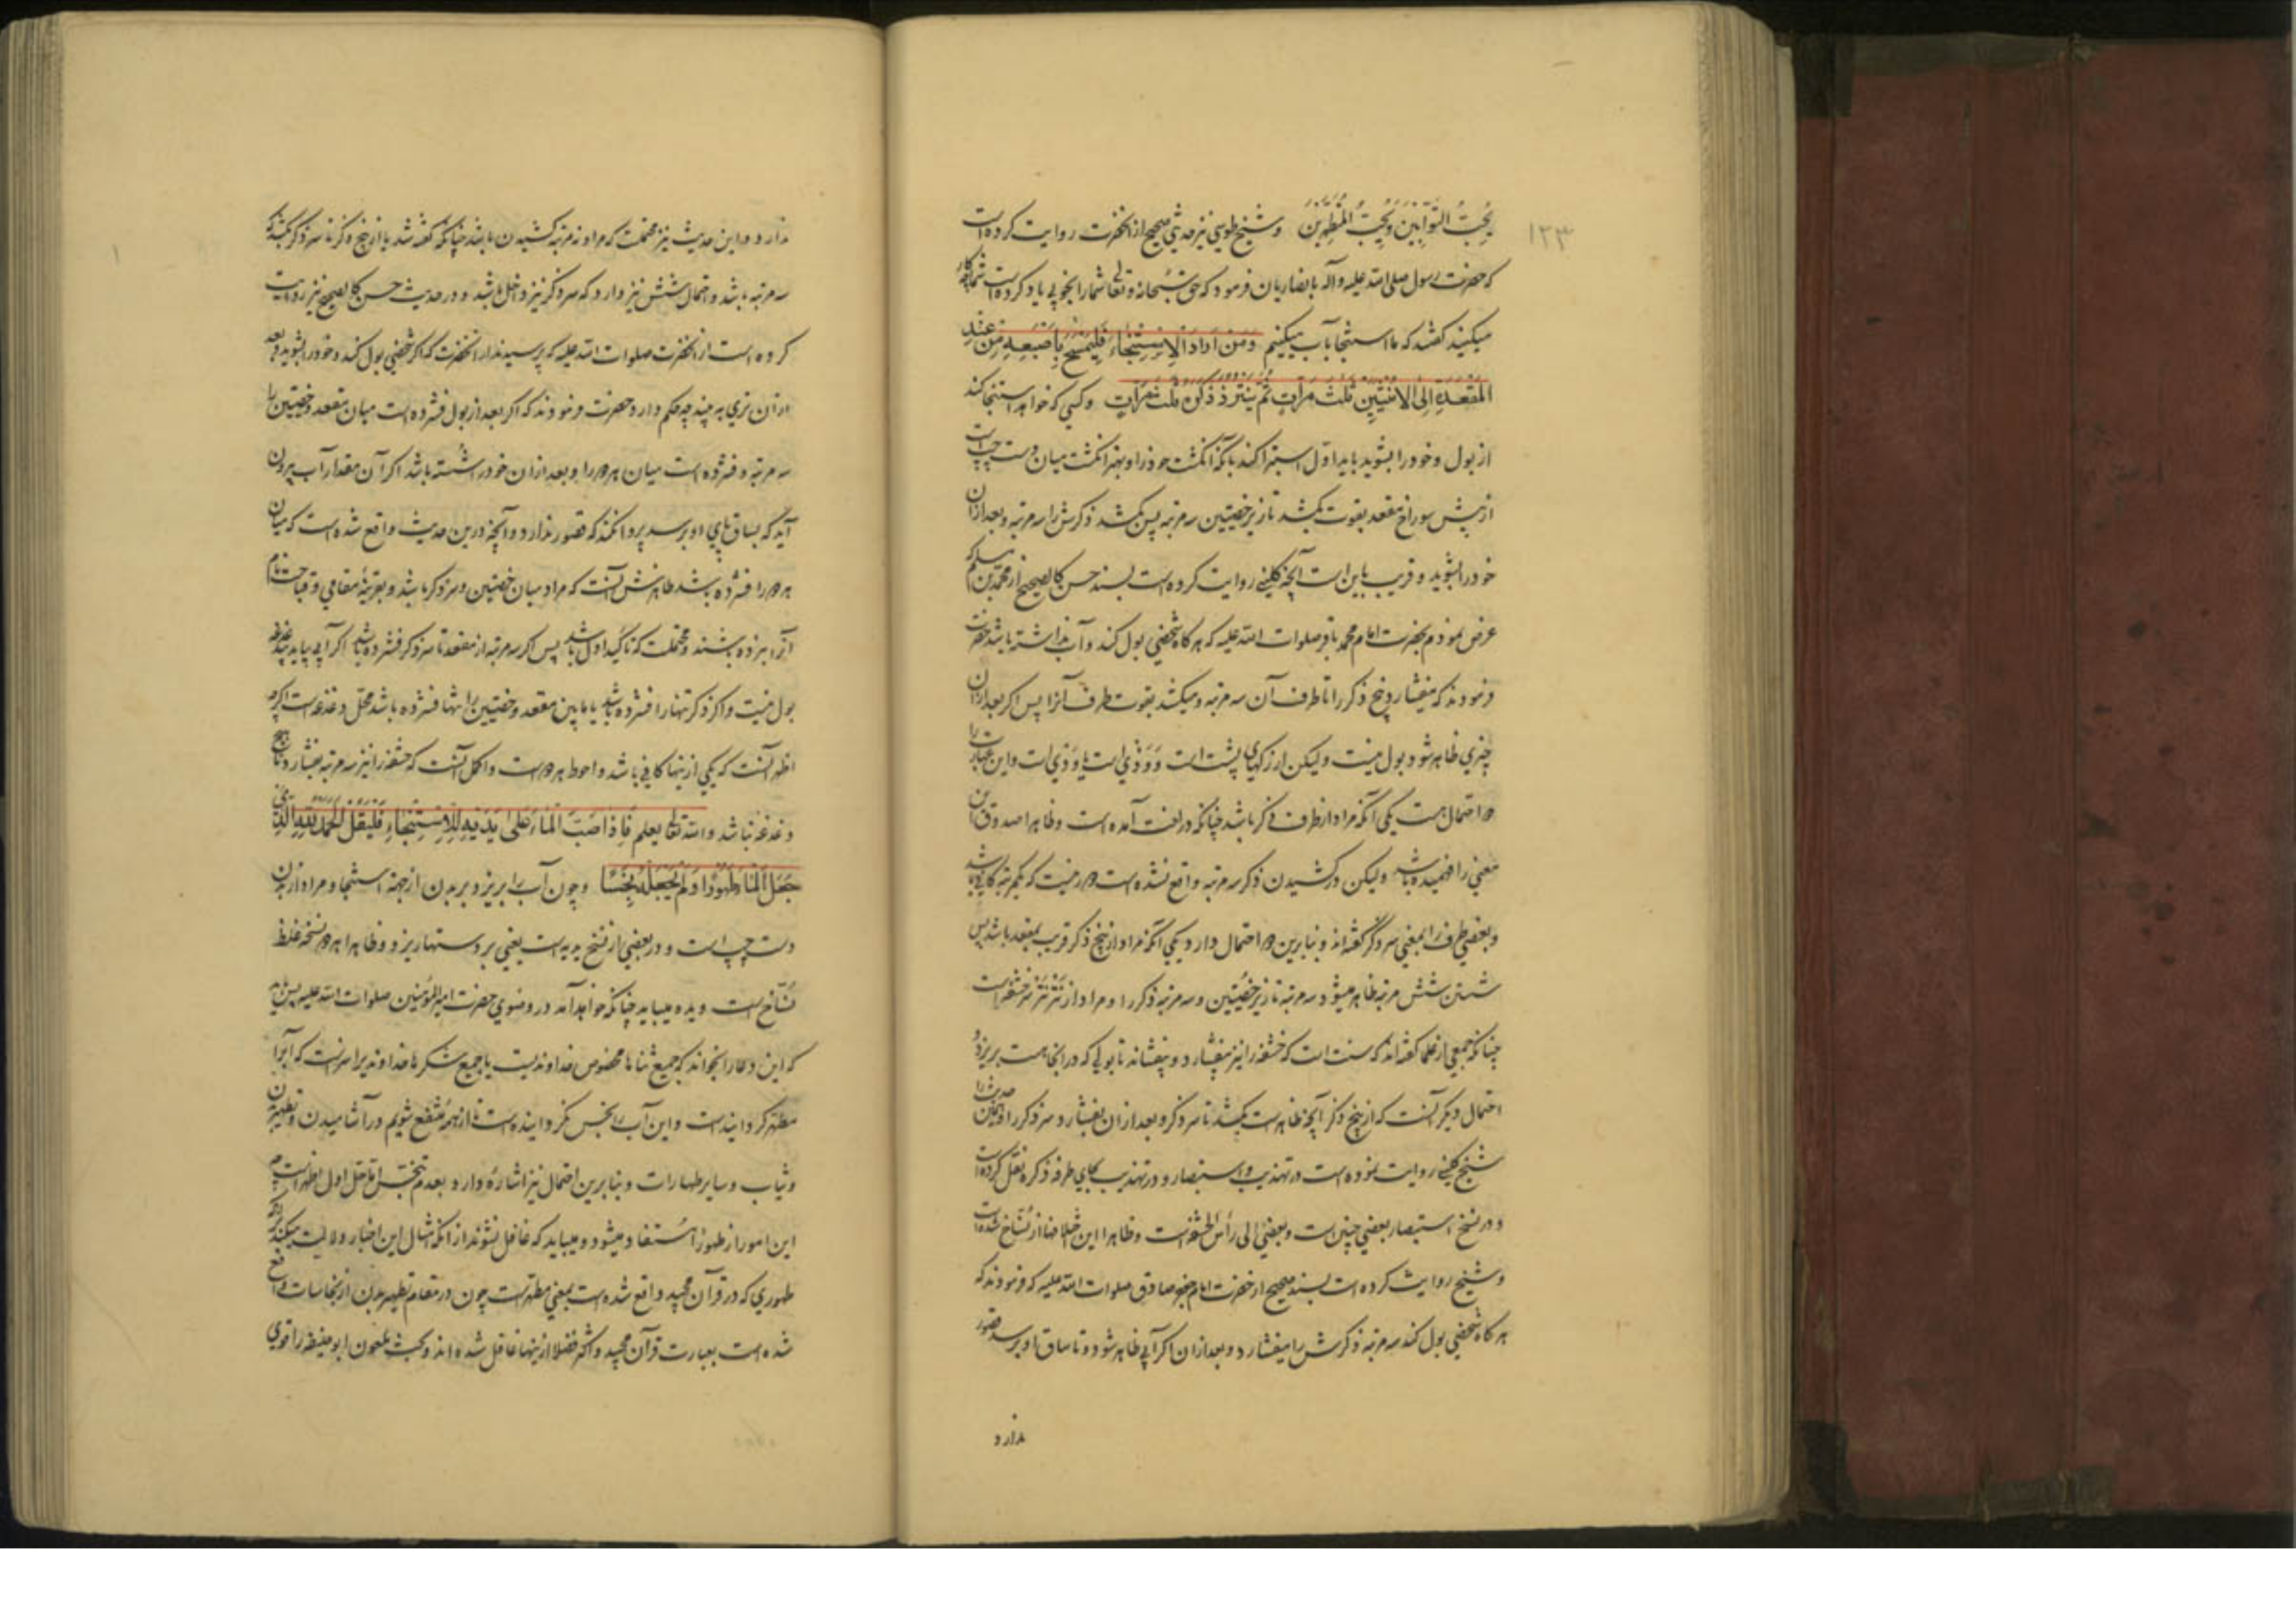 ۱۲۳
یُحِبُّ التَّوَّابِینَ وَیُحِبُّ الْمُتَطَهِّرِینَ و شیخ طوسی نیز حدیثی صحیح از انحضرت روایت کرده است
که حضرت رسول صلی الله علیه وآله بانصاریان فرمود که حق سبحانه وتعالی شما را بخوبی یاد کرده است شما چکار
میکنید گفتند که ما استنجا بآب میکنیم وَمَنْ اَرَادَ الْاِسْتِنْجَاءَ فَلْیَمْسَحْ بِاِصْبَعِهِ مِنْ عِنْدِ
الْمَقْعَدَةِ اِلَی الْاُنْثَیَیْنِ ثَلٰثَ مَرَّاتٍ ثُمَّ یَنْتُرُ ذَکَرَهُ ثَلٰثَ مَرَّاتٍ وکسی که خواهد استنجا کند
از بول وخود را بشوید باید اول استبرا کند بآنکه انکشت خود را وبهتر انکشت میان دست چپ است
از پیش سوراخ مقعد بقوت بکشد تا زیر خصیتین سه مرتبه پس بکشد ذکرش را سه مرتبه وبعد ازان
خود را بشوید و قریب باین است آنچه کلینی روایت کرده است بسند حسن کالصحیح از محمد بن مسلم که
عرض نمودم بحضرت امام محمد باقر صلوات الله علیه که هر کاه شخصی بول کند وآب نداشته باشد حضرت
فرمودند که میفشارد بیخ ذکر را تا طرف آن سه مرتبه ومیکشد بقوت طرف آنرا پس اکر بعد ازان
چیزی ظاهر شود بول نیست ولیکن از رکهای پشت است و وذی است یا ودی است واین عبارت را
دو احتمال هست یکی آنکه مراد از طرف ذکر باشد چنانکه در لغت آمده است وظاهرا صدوق این
معنی را فهمیده باشد ولیکن در کشیدن ذکر سه مرتبه واقع نشده است دور نیست که یکمرتبه کافی باشد
وبعضی طرف را بمعنی سر ذکر گفته‌اند وبنابرین دو احتمال دارد یکی آنکه مراد از بیخ ذکر قریب بمقعد باشد پس
شستن شش مرتبه ظاهر میشود سه مرتبه تا زیر خصیتین وسه مرتبه ذکر را ومراد از نتر نتر سر حشفه است
چنانکه جمعی از علما گفته‌اند که سنت است که حشفه را نیز بفشارد وبیفشاند تا بولی که در انجا هست بریزد و
احتمال دیکر آنست که از بیخ ذکر آنچه ظاهر است بکشد تا سر ذکر وبعد ازان بفشارد سر ذکر را وهمین حدیث را
شیخ کلینی روایت نموده است در تهذیب و استبصار ودر تهذیب بجای طرفه ذکره نقل کرده است
ودر نسخ استبصار بعضی چنین است وبعضی الی رأس الحشفه است وظاهرا این اختلافها از نساخ شده است
وشیخ روایت کرده است بسند صحیح از حضرت امام جعفر صادق صلوات الله علیه که فرمودند که
هر کاه شخصی بول کند سه مرتبه ذکرش را میفشارد وبعد ازان اکر آبی ظاهر شود وتا ساق او برسد قصور
ندارد
ندارد واین حدیث نیز محتملست که مراد نه مرتبه کشیدن باشد چنانکه گفته شد یا از بیخ ذکر تا سر ذکر بکشد که
سه مرتبه باشد واحتمال شش نیز دارد که سر ذکر نیز داخل باشد ودر حدیث حسن کالصحیح نیز روایت
کرده است از انحضرت صلوات الله علیه که پرسیدند از انحضرت که اکر شخصی بول کند وخود را بشوید وبعد
ازان تری به بیند چه حکم دارد حضرت فرمودند که اکر بعد از بول فشرده است میان مقعد وخصیتین را
سه مرتبه وفشرده است میان هر دو را وبعد ازان خود را شسته باشد اکر آن مقدار آب بیرون
آید که بساق پای او برسد پروا نکند که قصور ندارد وآنچه درین حدیث واقع شده است که میان
هر دو را فشرده باشد ظاهرش آنست که مراد میان خصیتین وسر ذکر باشد وبقرینه مقامی وقباحت نام
آنرا نبرده باشند ومحتملست که تاکید اول باشد پس اکر سه مرتبه از مقعد تا سر ذکر فشرده باشد اکر آبی بیاید دغدغه
بول نیست واکر ذکر تنها را فشرده باشد یا مابین مقعد وخصیتین را تنها فشرده باشد محل دغدغه است اکرچه
اظهر آنست که یکی ازینها کافی باشد واحوط هر دو است واکمل آنست که حشفه را نیز سه مرتبه بفشارد تا هیچ
دغدغه نباشد والله تعالی یعلم فَاِذَا صَبَّ الْمَاءَ عَلٰی یَدَیْهِ لِلْاِسْتِنْجَاءِ فَلْیَقُلْ اَلْحَمْدُ لِلّٰهِ الَّذِی
جَعَلَ الْمَاءَ طَهُورًا وَلَمْ یَجْعَلْهُ نَجِسًا وچون آب را بریزد بر بدن از جهة استنجا ومراد از بدن
دست چپ است ودر بعضی از نسخ یدیه است یعنی بر دستها ریزد وظاهرا هر دو نسخه غلط
نساخ است ویده میباید چنانکه خواهد آمد در وضوی حضرت امیرالمؤمنین صلوات الله علیه پس باید
که این دعا را بخواند که جمیع ثناها مخصوص خداوندیست یا جمیع شکرها خداوندیرا سزاست که آب را
مطهر کردانیده است واین آب را نجس نکردانیده است تا از همه منتفع شویم در آشامیدن وتطهیر بدن
وثیاب وسایر طهارات وبنابرین احتمال نیز اشاره دارد بعدم تنجس قلیل اول اظهر است چه
این امور از طهورا استفاد میشود ومیباید که غافل نشوند از آنکه امثال این اخبار دلالت میکند که
طهوری که در قرآن مجید واقع شده است بمعنی مطهر است چون در مقام تطهیر بدن از نجاسات واقع
شده است بعبارت قرآن مجید واکثر فضلا ازینها غافل شده‌اند وبحث ملعون ابو حنیفه را قوی